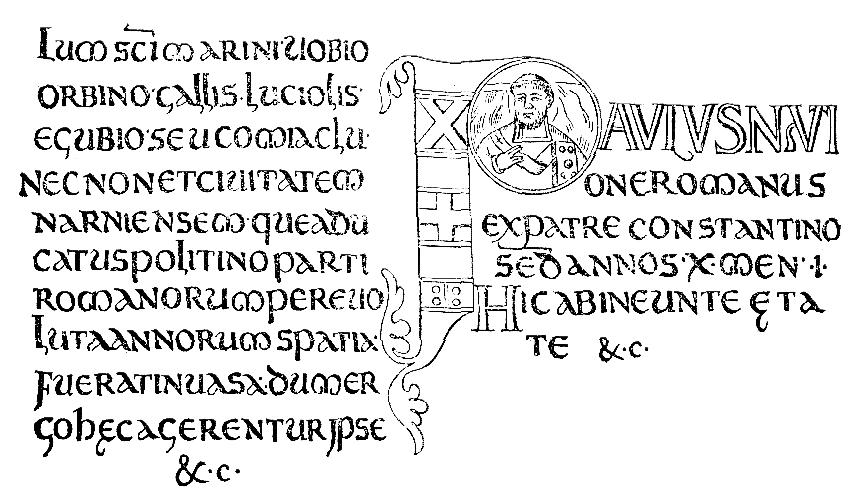 LUM SCI MARINI UOBIO
ORBINO·GALLIS·LUCIOLIS·
EGUBIO·SEU COMIACLU·
NECNON ET CIUITATEM
NARNIENSEM·QUE A DU
CATU SPOLITINO PARTI
ROMANORUM PER EUO
LUTA ANNORUM SPATIA·
FUERAT INUASA·DUM ER
GO HĘC AGERENTUR IPSE
&·C·
PAVLVS NATI
ONE ROMANUS
EX PATRE CONSTANTINO
SED ANNOS·X·MEN·I·
HIC AB INEUNTE ĘTA
TE &·C·